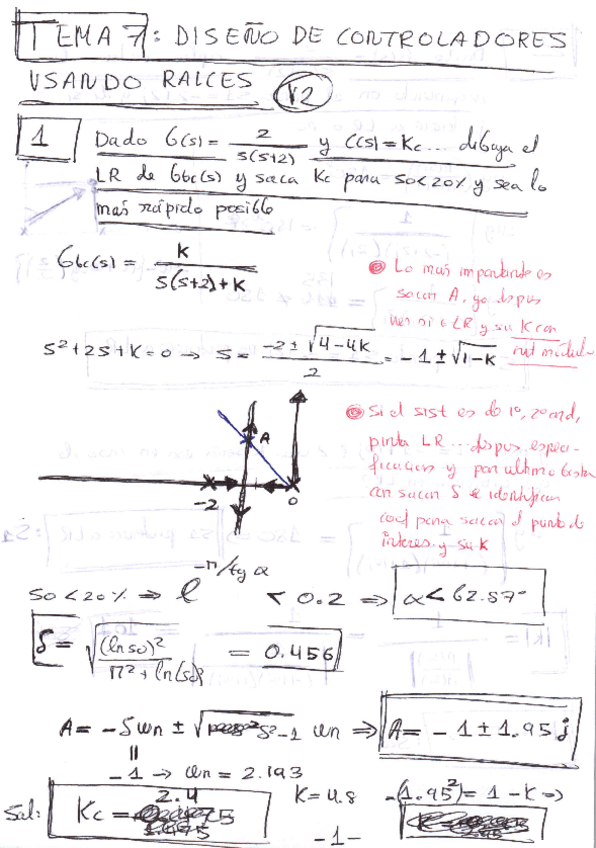 TEMA 7: DISEÑO DE CONTROLADORES
USANDO RAICES V2
1 Dado G(s) = 2/s(s+2) y C(s) = Kc ... dibuja el
LR de Gbc(s) y saca Kc para SO<20% y sea lo
más rápido posibl
Gbc(s) = K/s(s+2)+K
Lo mas importante es
sacar A, ya dspus
LR y su K con
s²+2s+K=0 → s = -2±√4-4K/2 = -1±√1-K
Si el sist es de 1º, 2º ord,
pinta LR ... dspus especi-
ficacions y por ultimo
con sacar S e identificar
coef para sacar el punto de
interes y su K
A
-2
0
SO<20% ⇒ e^-π/tg α < 0.2 ⇒ α<62.87°
δ = √(ln so)²/π²+ln(so)² = 0.456
A = -δωn ± √δ²-1 ωn ⇒ A = -1 ± 1.95j
=
-1 → ωn = 2.193
Sol: Kc = 2.4 K=4.8 -(1.95²) = 1-K ⇒
-1-